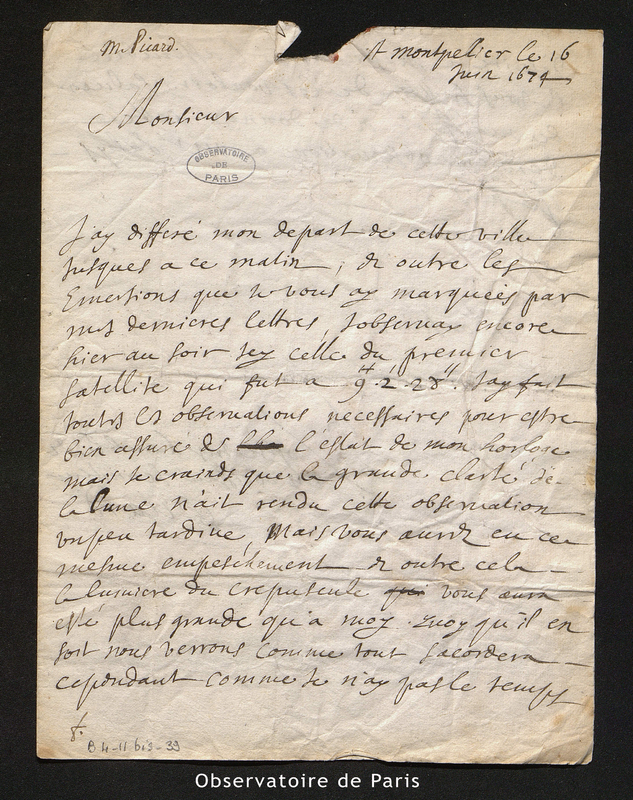 M. Picard.
A montpelier le 16
Juin 1674
Monsieur
OBSERVATOIRE
DE
PARIS
Jay differé mon depart de cette ville
Jusques a ce matin ; & outre les
Emersions que Je vous ay marquées par
mes dernieres lettres, Jobservay encore
hier au soir Icy celle du premier
satellite qui fut a 9H. 2'. 28". Jay fait
toutes les observations necessaires pour estre
bien assure de l'estat de mon horloge
mais Je crainds que la grande clarté de
la Lune n'ait rendu cette observation
unpeu tardive, Mais vous aurez eu ce
mesme empeschement & outre cela
la lumiere du crepuscule vous aura
esté plus grande qu'a moy. quoy qu'il en
soit nous verrons comme tout sacordera
cependant comme Je n'ay pas le temps
8.
B 4-11 bis-39
Observatoire de Paris